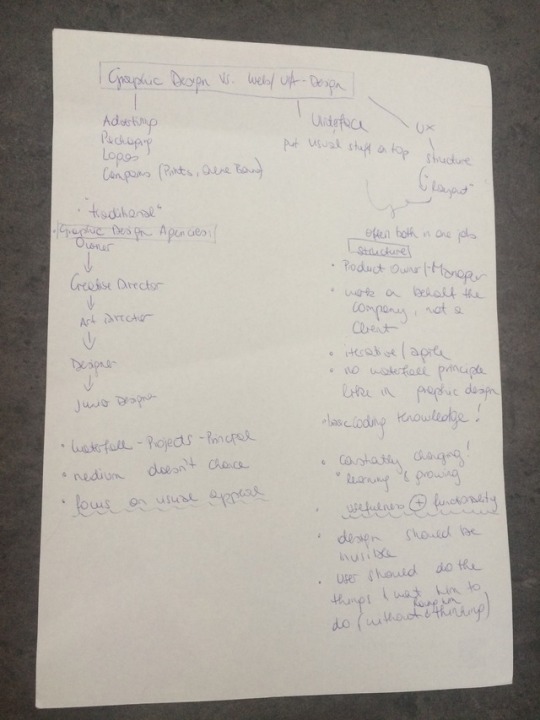 Graphic Design Vs. Web/UX-Design
Advertising
Packaging
Logos
Campaigns (Prints, Online Banner)
Interface
put visual stuff on top
UX
structure
("layout"
"traditional"
Graphic Design Agencies
Owner
Creative Director
Art Director
Designer
Junior Designer
• Waterfall-Projects-Principal
• medium doesn't
• focus on visual appeal
often both in one jobs
structure
• Product Owner/Manager
• work on behalf the
company, not a
client
• iterative/agile
• no waterfall principle
like in graphic design
coding knowledge!
• constantly changing!
"learning is growing
• usefulness + functionality
• design should be
invisible
• user should do the
things I want him to
do (without thinking)